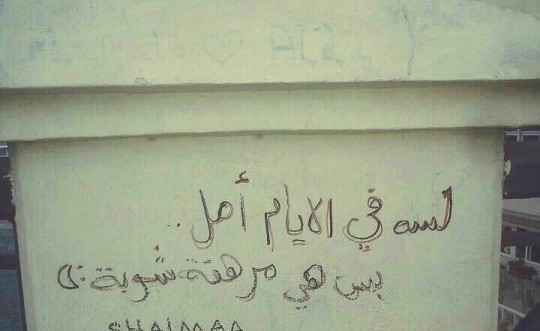 لسه في الايام أمل..
بس هي مرهقة شوية :)
SHAIMAA